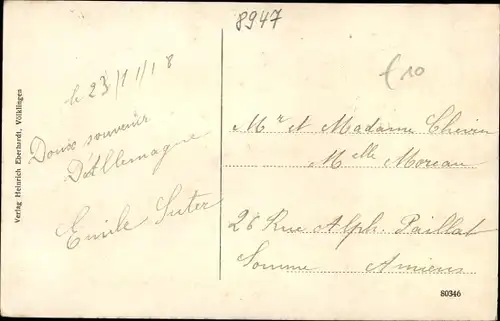 8947
£10
le 23/11/18
Doux souvenir
D'Allemagne
Emile Suter
Mr et Madame
Melle Moreau
28 Rue Alph. Paillat
Somme Amiens
Verlag Heinrich Eberhardt, Völklingen
80346